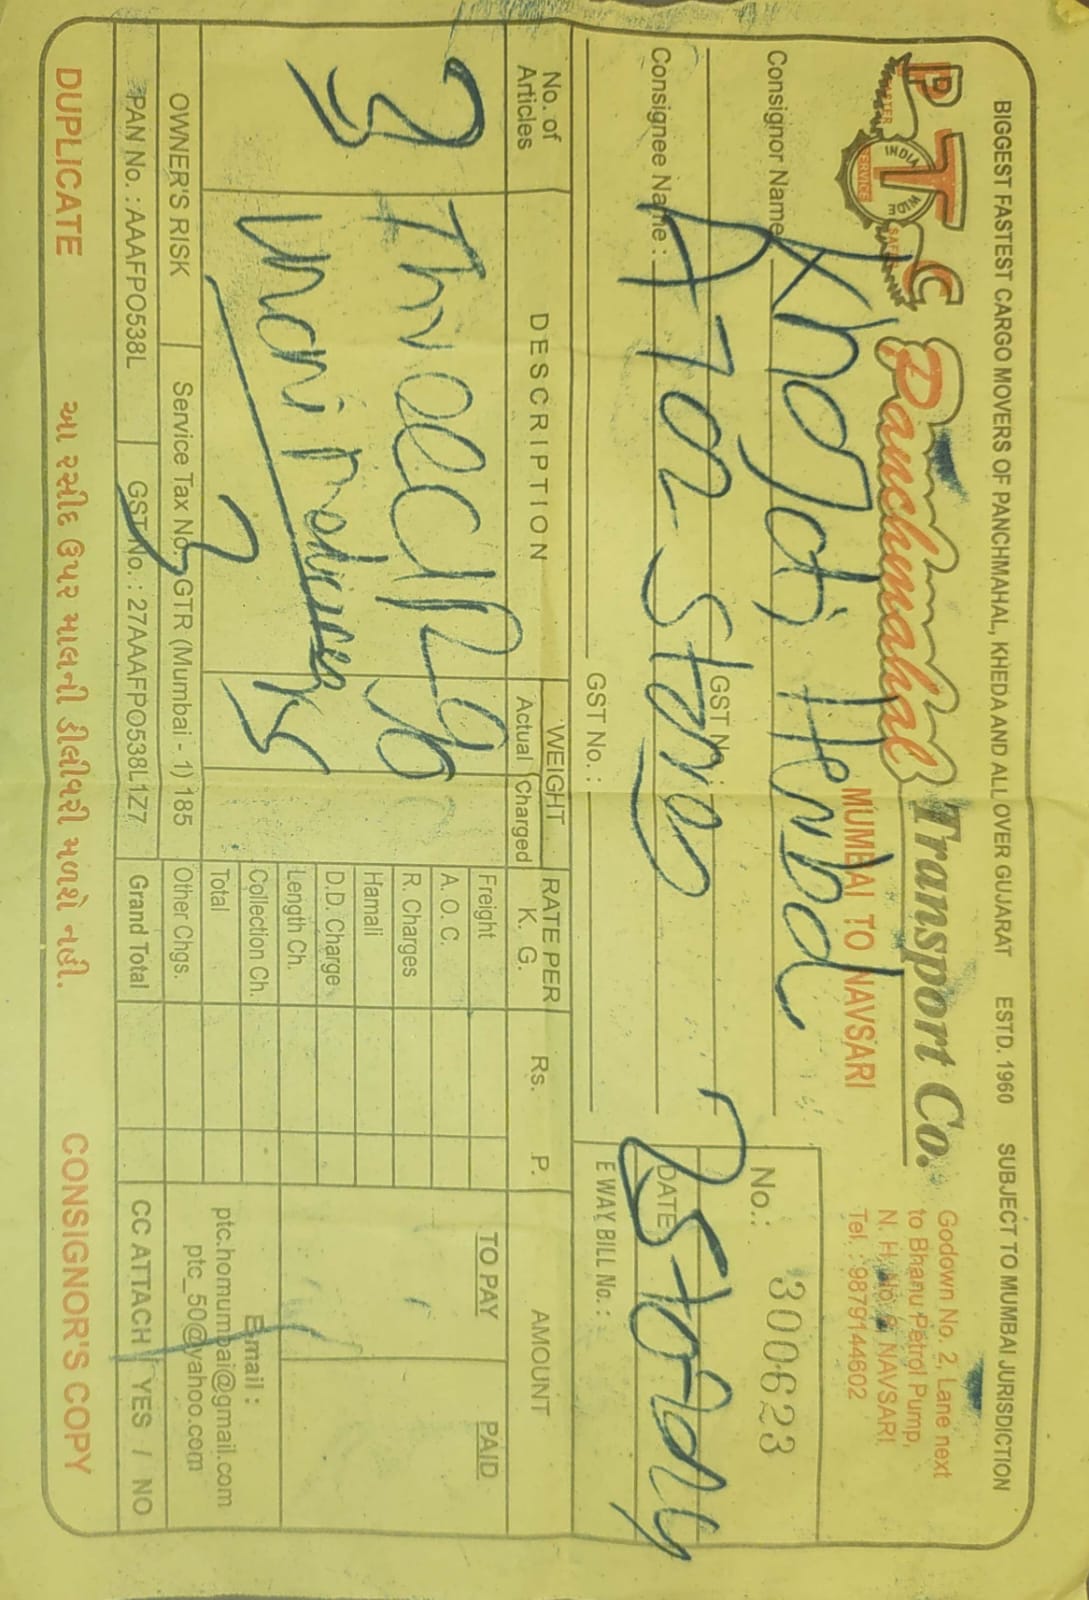 BIGGEST FASTEST CARGO MOVERS OF PANCHMAHAL, KHEDA AND ALL OVER GUJARAT ESTD. 1960 SUBJECT TO MUMBAI JURISDICTION
PTC
FASTER INDIA WIDE SAFE SERVICE
Panchmahal Transport Co.
MUMBAI TO NAVSARI
Godown No. 2, Lane next
to Bhanu Petrol Pump,
N. H. No. 8, NAVSARI,
Tel. : 9879144602
Consignor Name
GST No
No.: 300623
Consignee Name : A 702 Store
DATE
GST No. :
E WAY BILL No. :
No. of Articles
DESCRIPTION
WEIGHT
Actual Charged
RATE PER K. G.
Rs. P.
AMOUNT
3
Three
96
Freight
TO PAY
PAID
A. O. C.
R. Charges
Hamali
D.D. Charge
Length Ch.
Collection Ch.
Total
E-mail :
ptc.homumbai@gmail.com
ptc_50@yahoo.com
OWNER'S RISK
Service Tax No. GTR (Mumbai - 1) 185
Other Chgs.
PAN No. : AAAFPO538L
GST No. : 27AAAFPO538L1Z7
Grand Total
CC ATTACH YES / NO
DUPLICATE
આ રસીદ ઉપર માલની ડીલીવરી મળશે નહી.
CONSIGNOR'S COPY